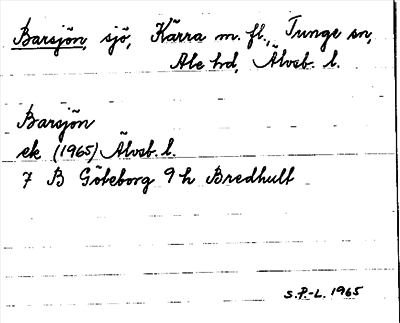 Barsjön, sjö, Kärra m. fl., Tunge sn,
Ale hd, Älvsb. l.
Barsjön
ek (1965) Älvsb. l.
7 B Göteborg 9 h Bredhult
S.P.-L. 1965